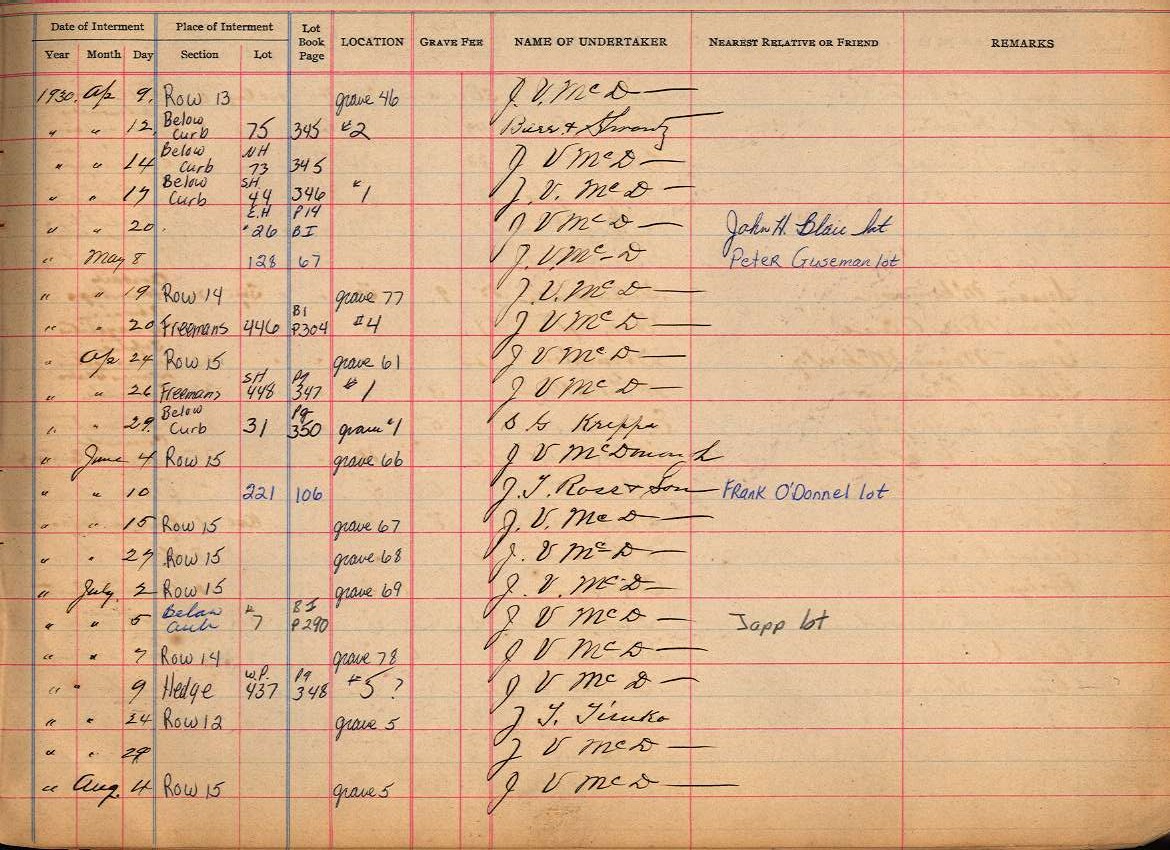 Date of Interment Place of Interment Lot Book Page LOCATION GRAVE FEE NAME OF UNDERTAKER NEAREST RELATIVE OR FRIEND REMARKS
Year Month Day Section Lot
1930 Ap 9. Row 13 grave 46 J. V. McD
" " 12 Below Curb 75 345 #2 Burr +
" " 14 Below Curb NH 73 345 J V McD
" " 17 Below Curb SH 44 346 #1 J. V. McD
" " 20 E.H 26 P14 BI J V McD John H. Blair lot
" May 8 128 67 J. V. McD Peter Guseman lot
" " 19 Row 14 grave 77 J. V. McD
" " 20 Freemans 446 B1 P304 #4 J V McD
" Ap 24 Row 15 grave 61 J V McD
" " 26 Freemans SH 448 Pg 347 #1 J V McD
" " 29 Below Curb 31 Pg 350 grave #1 S G Kreppa
" June 4 Row 15 grave 66 J V McDonough
" " 10 221 106 J. T. Rose + Son FRANK O'Donnel lot
" " 15 Row 15 grave 67 J. V. McD
" " 27 Row 15 grave 68 J. V McD
" July 2 Row 15 grave 69 J. V. McD
" " 5 Below Curb 7 B I P290 J V McD Japp lot
" " 7 Row 14 grave 78 J V McD
" " 9 Hedge W.P. 437 Pg 348 #5 ? J V McD
" " 24 Row 12 grave 5 J. T. Tisuko
" " 29 J V McD
" Aug. 4 Row 15 grave 5 J V McD